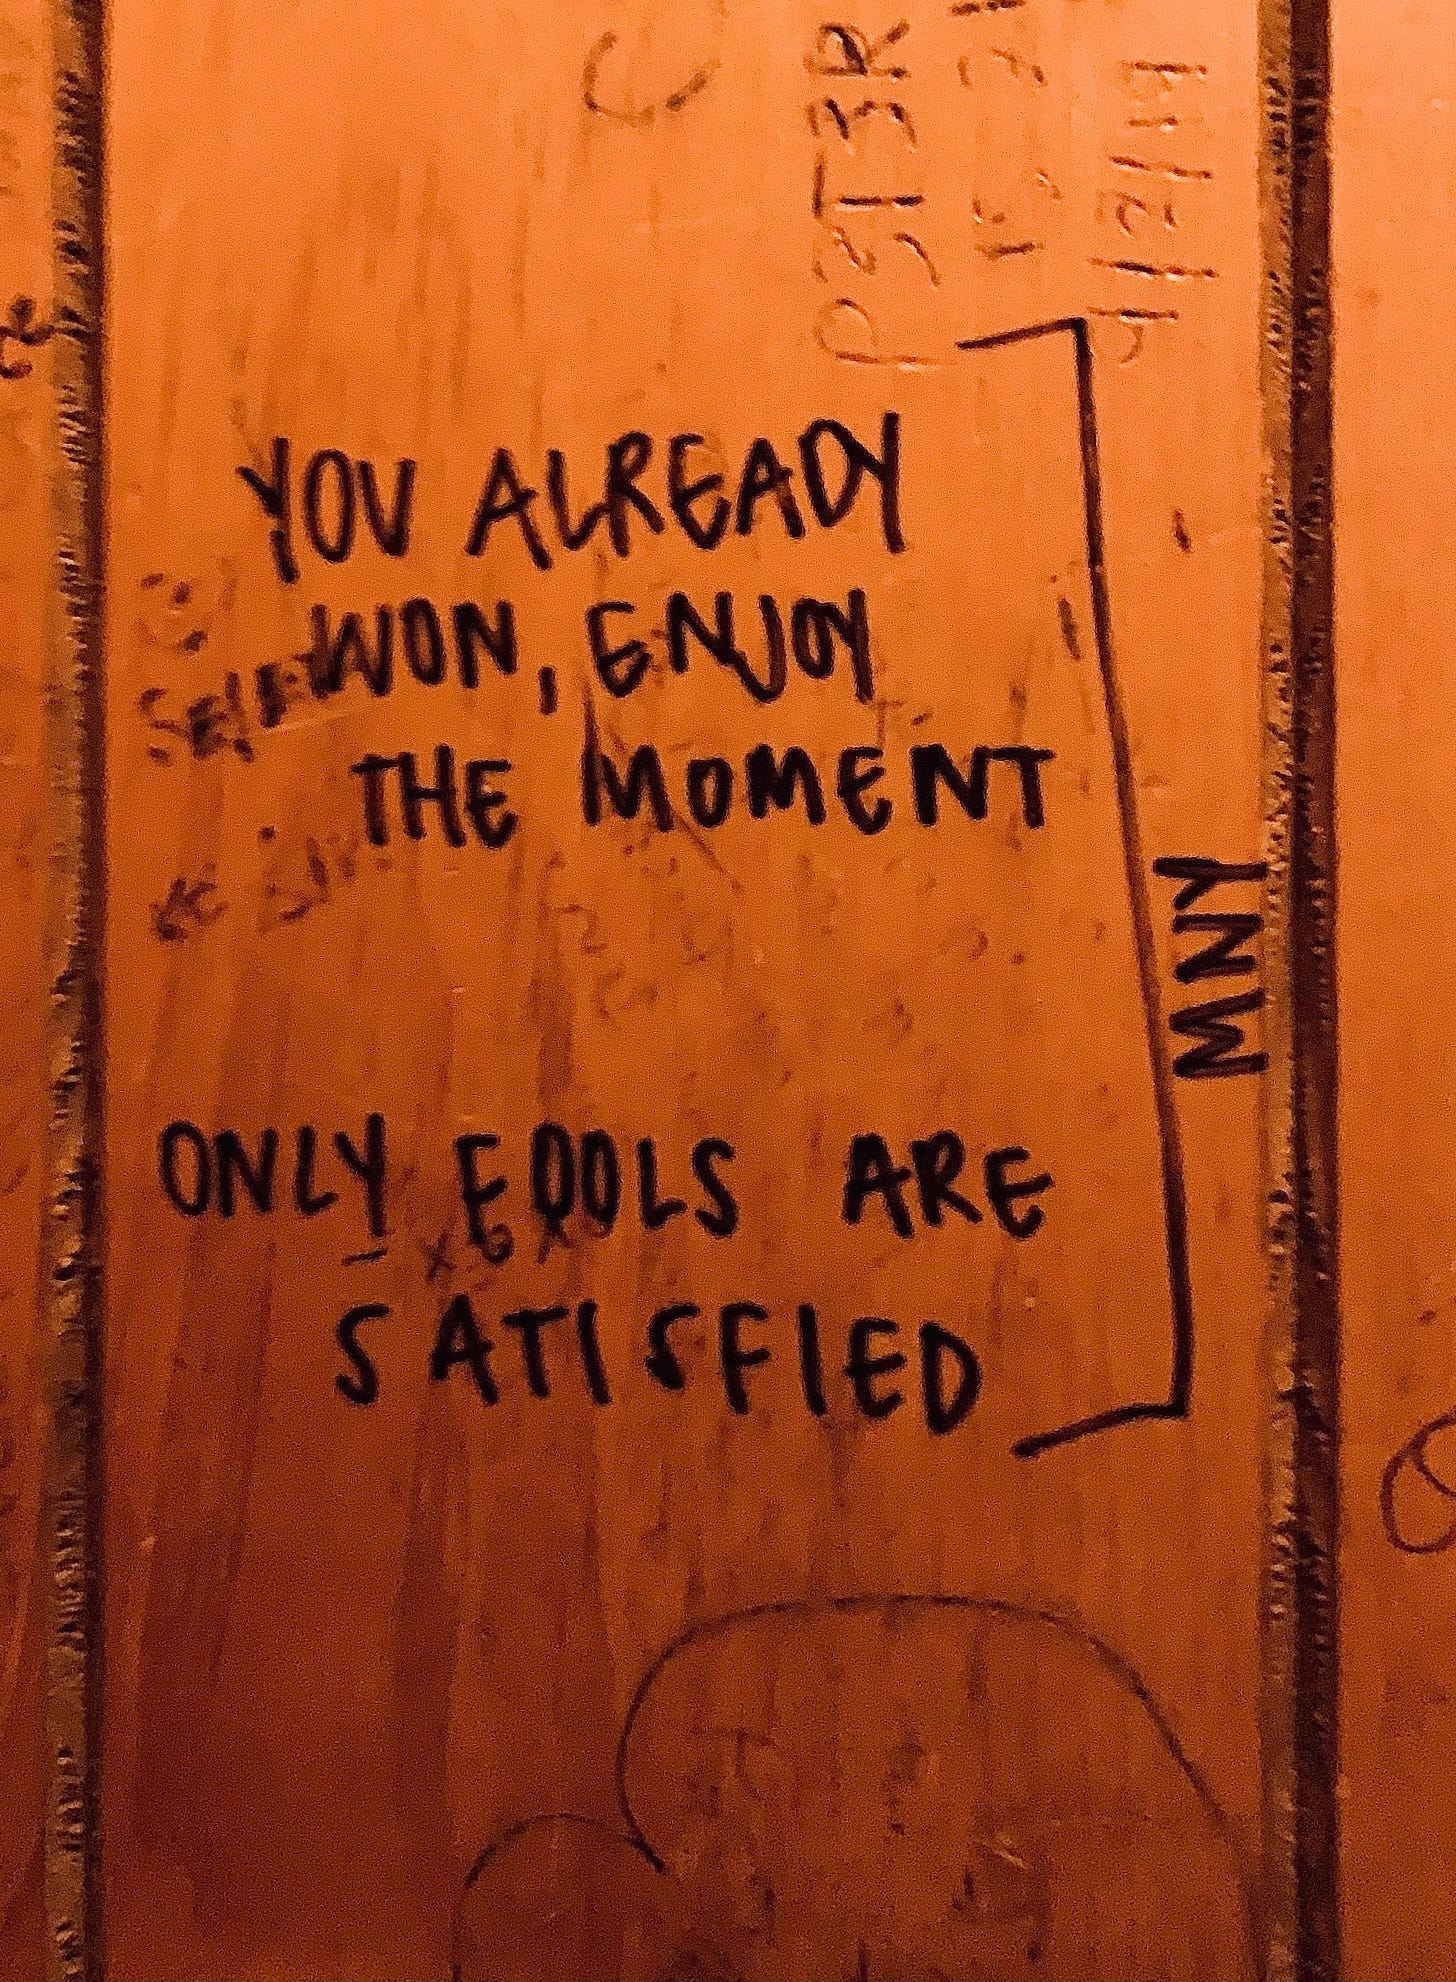 P3T3R
4/2/19
YOU ALREADY
WON, ENJOY
THE MOMENT
MNY
ONLY FOOLS ARE
SATISFIED